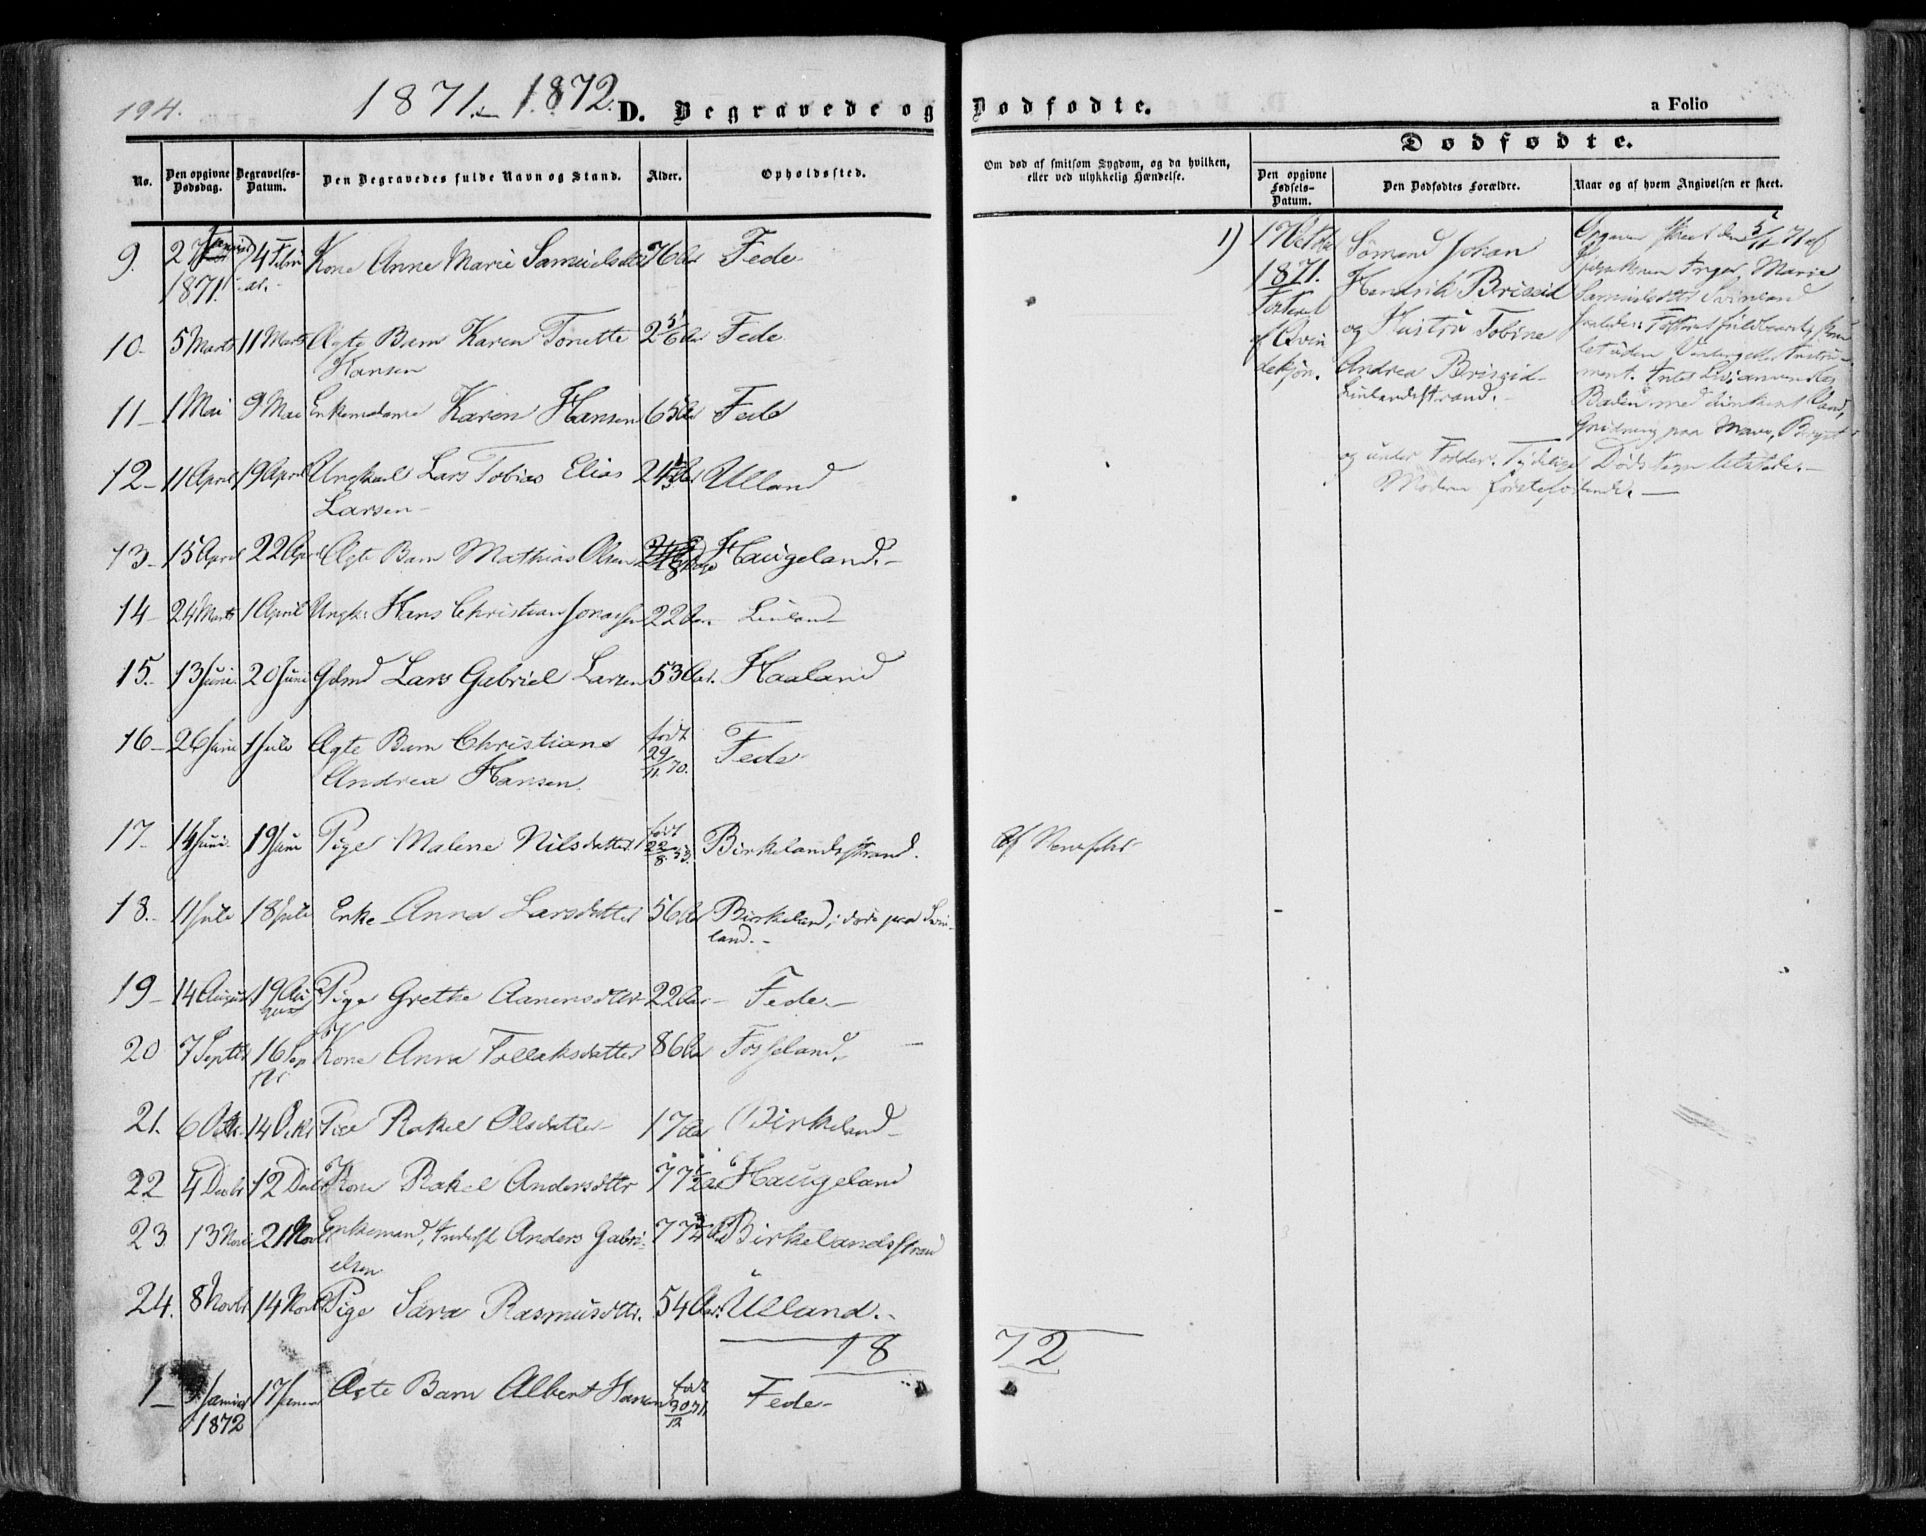 194.
1871.- 1872.
D. Begravede og Dødfødte.
a Folio
No.
Den opgivne Dødsdag.
Begravelses-Datum.
Den Begravedes fulde Navn og Stand.
Alder.
Opholdssted.
Om død af smitsom Sygdom, og da hvilken, eller ved ulykkelig Hændelse.
Dødfødte.
Den opgivne Fødsels-Datum.
Den Dødfødtes Forældre.
Naar og af hvem Angivelsen er skeet.
9. 27 Januar 1871. 4 Febru ar.- Kone Anne Marie Samuelsdtr 76 Aar Fede
10. 5 Marts 11 Marts Ægte Barn Karen Tonette 2 5/6 Aar Fede
Hansen
11 1 Mai 9 Mai Enkemadame Karen Hansen 65 Aar Fede
12 11 April 19 April Ungkarl Lars Tobias Elias Ulland
Larsen
13 15 April 22 Apr Ægte Barn Mathias Olsen Haugeland.-
14 24 Marts 1 April Ungk: Hans Christian 22 Aar Liland
15. 13 Juni 20 Juni Gdmd Lars Gabriel Larsen 53 Aar. Haaland
16 26 Juni 1 Juli Ægte Barn Christiane født 29/11 70. Fede
Andrea Hansen.
17. 14 Juni 19 Juni Pige Malene Nilsdatter født 22/8 53. Birkelandsstrand.
18. 11 Juli 18 Juli Enke Anna Larsdatter 56 Aar Birkeland; døde paa Svin-
land.-
19 14 August 19 Au gust Pige Grethe Aanensdtr 22 Aar Fede.-
20 7 Septbr 16 Sep tbr Kone Anna Tollaksdatter 86 Aar Fosseland.
21. 6 Octbr 14 Octbr Pige Rakel Olsdatter 17 Aar Birkeland
22 4 Decbr 12 Decbr Kone Rakel Andersdttr 77 1/2 Aar Haugeland
23 13 Nov 21 Nov Enkemand, Inderst Anders Gabri- 77 3/4 Birkelandsstrand
elsen
24. 8 Novbr 14 Novbr Pige Sara Rasmusdttr. 54 Aar. Ulland.-
18
72
1 Januar 1872 17 Januar Ægte Barn Albert Hansen født 30/12 71. Fede
1) 17 Octbr 1871. Fosteret af Qvin dekjøn.
Sømand Johan
Henrik Briseid
og Hustru Tobine
Andrea Briseid
Opgaven skeet den 5/11 71 af
Hjelpekonen Inger Marie
Samuelsdtr Svinland
Intet Liv;
Baden med Vand,
Gnidning paa Mave, Bryst
og under Fødder. Tydelige Døds tegn tilstede.-
Moderen førstefødende.-